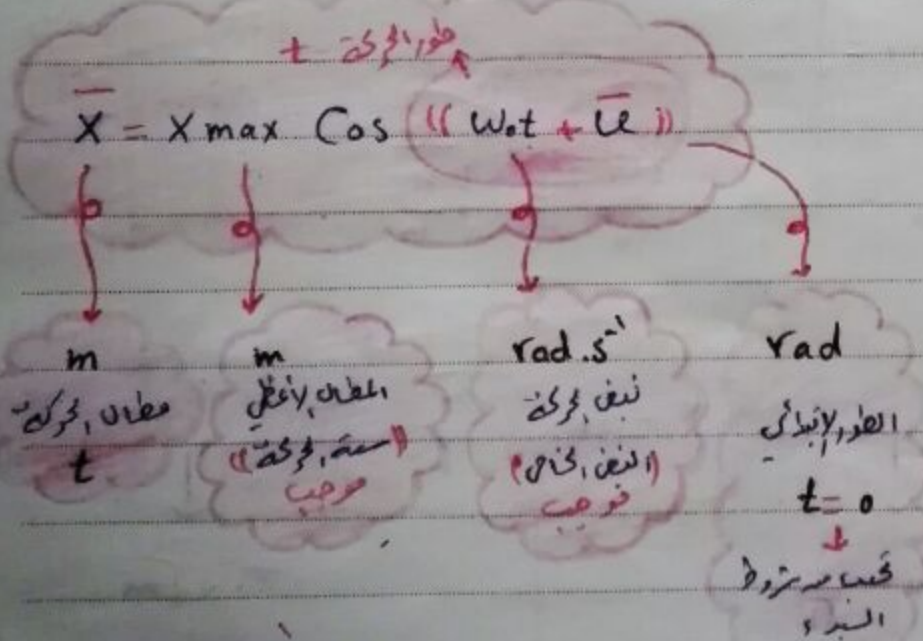 طور الحركة t
X̄ = X max Cos (( ω₀t + φ̄ ))
m
مطال الحركة
t
m
المطال الأعظمي
((سعة الحركة))
موجب
rad.s⁻¹
نبض الحركة
(النبض الخاص)
موجب
rad
الطور الابتدائي
t = 0
يحسب من شروط
البدء